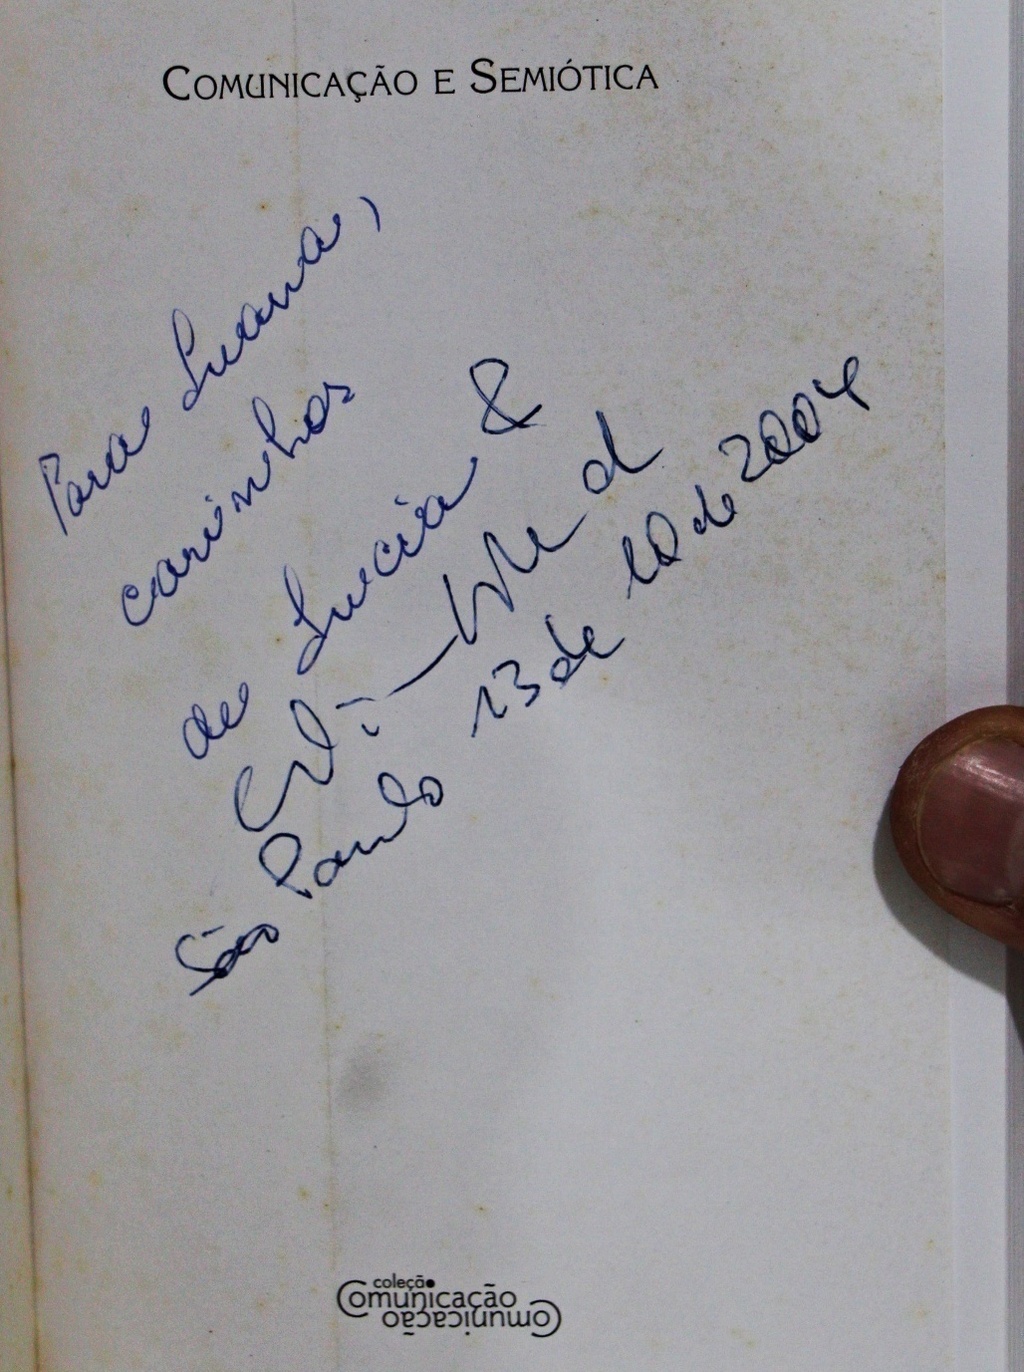 COMUNICAÇÃO E SEMIÓTICA
Para Luana,
carinhos
de Lucia &
São Paulo 13 de 10 de 2004
coleção
Comunicação
Comunicação